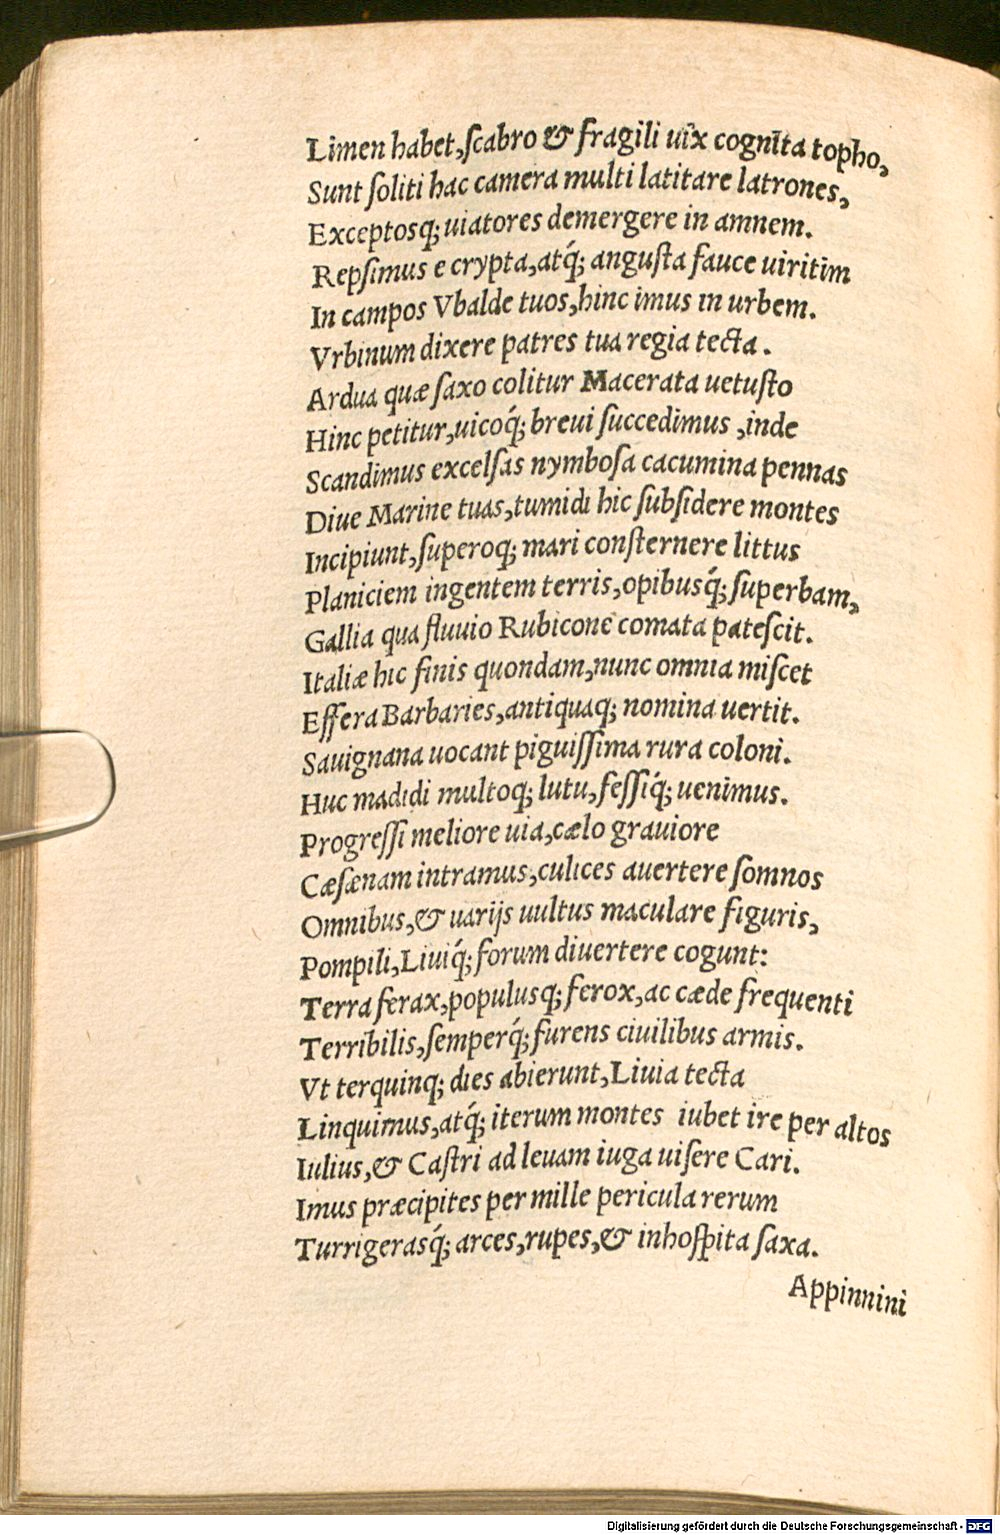 Limen habet,ſcabro & fragili uix cognita topho,
Sunt ſoliti hac camera multi latitare latrones,
Exceptosq; uiatores demergere in amnem.
Repſimus e crypta,atq́; anguſta fauce uiritim
In campos Vbalde tuos,hinc imus in urbem.
Vrbinum dixere patres tua regia tecta.
Ardua quæ ſaxo colitur Macerata uetuſto
Hinc petitur,uicoq́; breui ſuccedimus ,inde
Scandimus excelſas nymboſa cacumina pennas
Diue Marine tuas,tumidi hic ſubſidere montes
Incipiunt,ſuperoq; mari conſternere littus
Planiciem ingentem terris,opibusq́; ſuperbam,
Gallia qua fluuio Rubicone comata pateſcit.
Italiæ hic finis quondam,nunc omnia miſcet
Effera Barbaries,antiquaq; nomina uertit.
Sauignana uocant piguiſſima rura coloni.
Huc madidi multoq; lutu,feſſiq́; uenimus.
Progreſſi meliore uia,cælo grauiore
Cæſænam intramus,culices auertere ſomnos
Omnibus,& uarijs uultus maculare figuris,
Pompili,Liuiq́; forum diuertere cogunt:
Terra ferax,populusq; ferox,ac cæde frequenti
Terribilis,ſemperq́; furens ciuilibus armis.
Vt terquinq; dies abierunt,Liuia tecta
Linquimus,atq́; iterum montes iubet ire per altos
Iulius,& Caſtri ad leuam iuga uiſere Cari.
Imus præcipites per mille pericula rerum
Turrigerasq́; arces,rupes,& inhoſpita ſaxa.
Appinnini
Digitalisierung gefördert durch die Deutsche Forschungsgemeinschaft - DFG